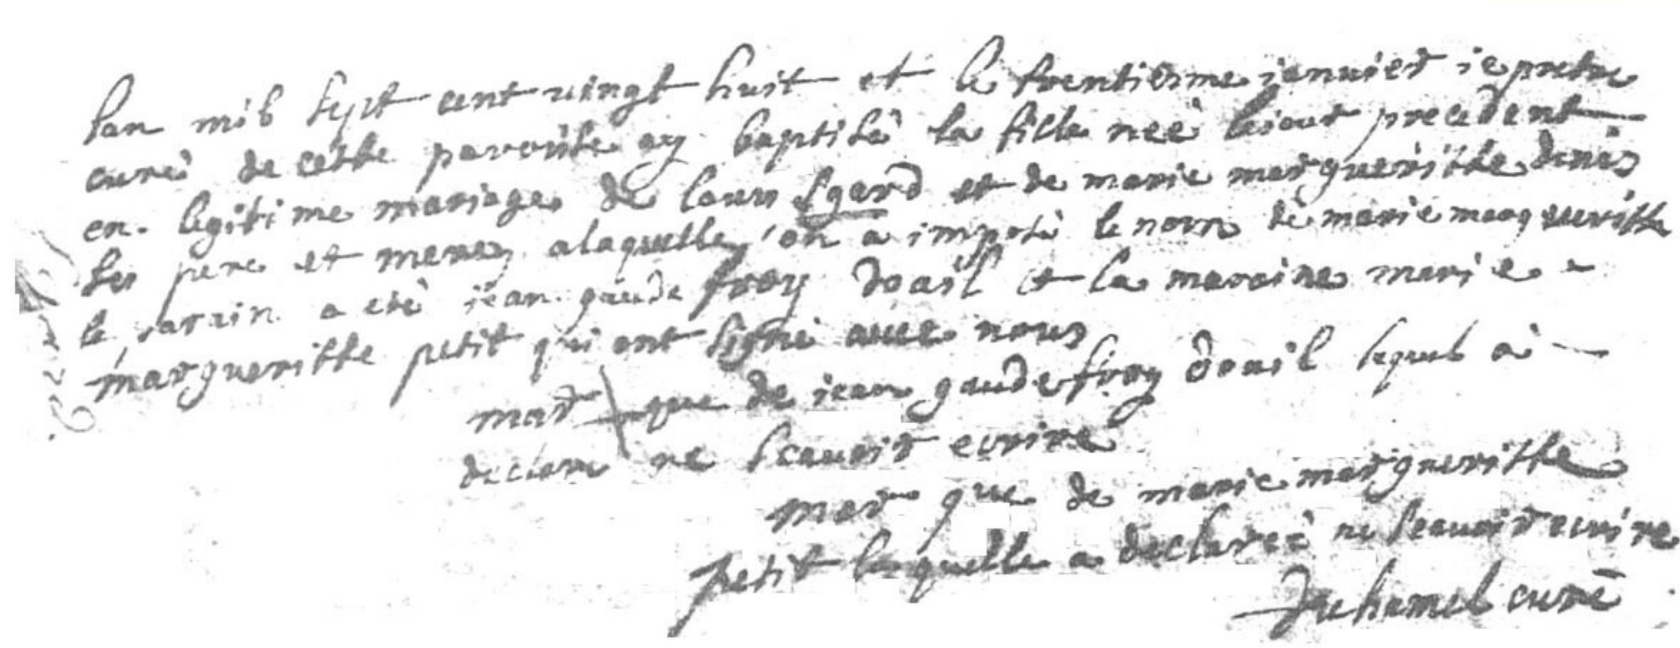 lan mil sept cent vingt huit et le trentiesme ianvier ie pretre
curé de cette paroisse ay baptisé la fille neé le iour precedent
en legitime mariage de louis sgard et de marie margueritte denis
ses pere et mere, a laquelle on a imposé le nom de marie margueritte
le parain a eté iean gaudefroy doail et la maraine marie
margueritte petit qui ont signé avec nous
mar que de iean gaudefroy doail lequel a
declaré ne scavoir ecrire
mar que de marie margueritte
petit laquelle a declareé ne scavoir ecrire
Duhamel curé